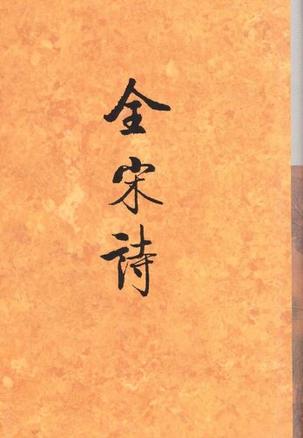 全宋诗